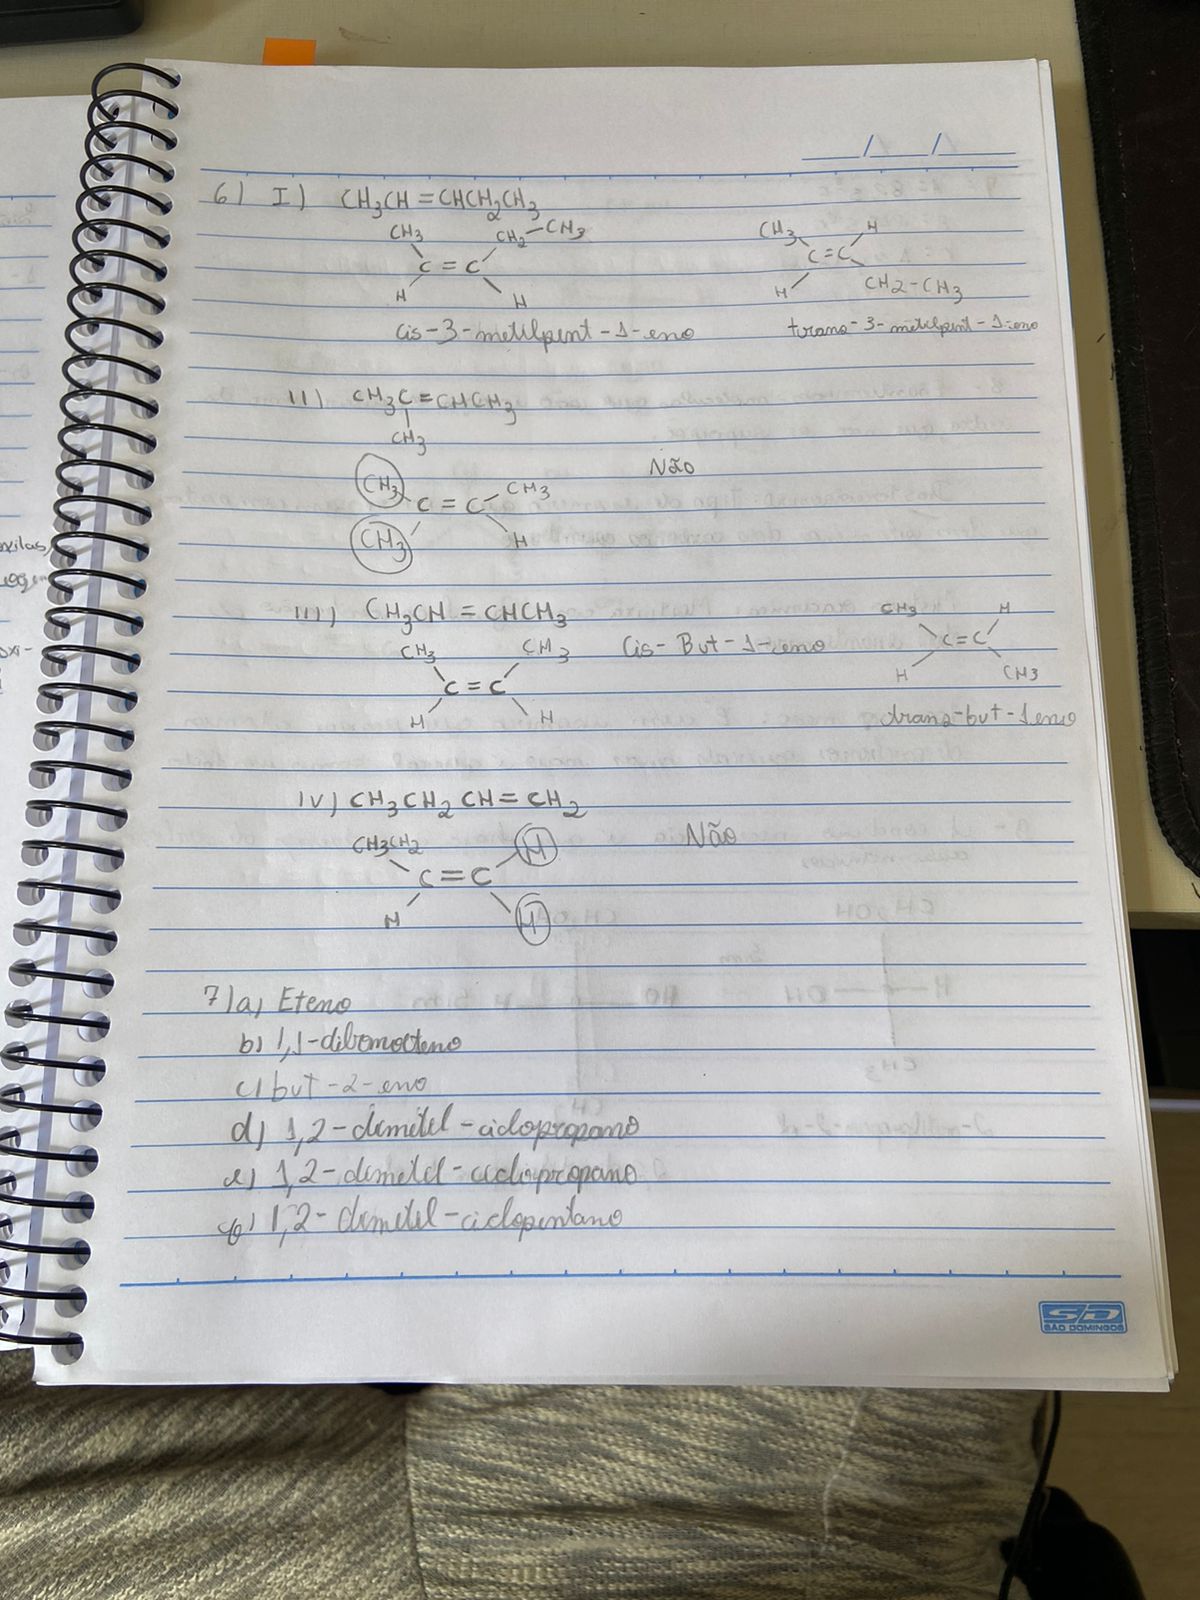 6) I) CH3CH=CHCH2CH3
CH3 CH2-CH3 CH3 H
C=C C=C
H H H CH2-CH3
cis-3-metilpent-1-eno trans-3-metilpent-1-eno
II) CH3C=CHCH3
CH3
Não
CH3 C=C CH3
CH3 H
III) CH3CH=CHCH3 CH3 H
CH3 CH3 Cis-But-1-eno C=C
C=C H CH3
H H trans-but-1eno
IV) CH3CH2CH=CH2
CH3CH2 H Não
C=C
H H
7)a) Eteno
b) 1,1-dibomoeteno
c) but-2-eno
d) 1,2-dimetil-ciclopropano
e) 1,2-dimetil-ciclopropano
f) 1,2-dimetil-ciclopentano
SD
SÃO DOMINGOS